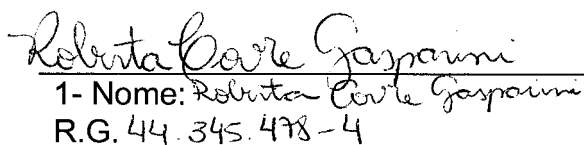 Roberta Corre Gasparini
1- Nome: Roberta Corre Gasparini
R.G. 44.345.478-4